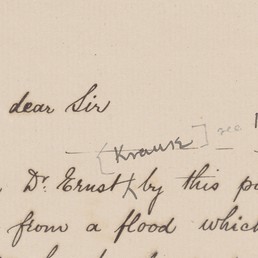 dear Sir
[Krause] see
Dr. Ernst by this
from a flood which